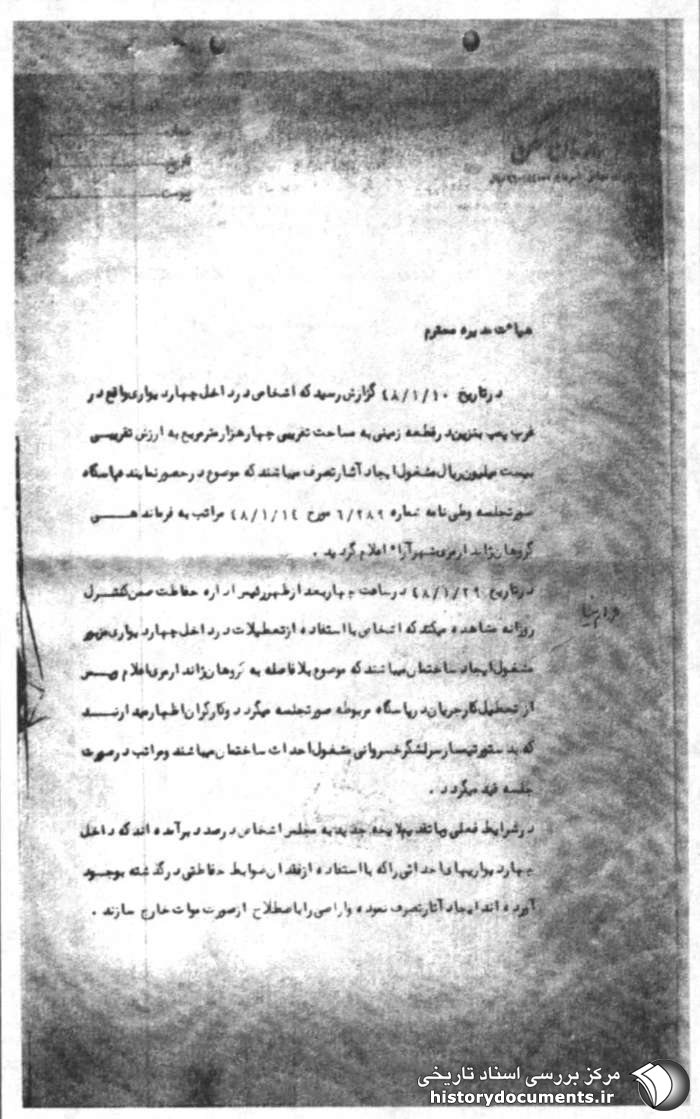 شماره
تاریخ
پیوست
سازمان مسکن
هیأت مدیره محترم
در تاریخ ۴۸/۱/۱۰ گزارش رسید که اشخاصی در داخل چهار دیواری واقع در
غرب پمپ بنزین در قطعه زمینی به مساحت تقریبی چهار هزار مترمربع به ارزش تقریبی
بیست میلیون ریال مشغول ایجاد آثار تصرف میباشند که موضوع در حضور نماینده پاسگاه
صورتجلسه و طی نامه شماره ۶/۲۸۹ مورخ ۴۸/۱/۱۴ مراتب به فرماندهی
گروهان ژاندارمری شهرآراء اعلام گردید .
در تاریخ ۴۸/۱/۲۹ در ساعت چهار بعد از ظهر رئیس اداره حفاظت ضمن کنترل
روزانه مشاهده میکند که اشخاص با استفاده از تعطیلات در داخل چهار دیواری مزبور
مشغول ایجاد ساختمان میباشند که موضوع بلافاصله به گروهان ژاندارمری اعلام و پس
از تعطیل کار جریان در پاسگاه مربوطه صورتجلسه میگردد و کارگران اظهار میدارند
که بدستور تیمسار سرلشگر خسروانی مشغول احداث ساختمان میباشند و مراتب در صورت
جلسه قید میگردد .
در شرایط فعلی و با تقدیم لایحه جدید به مجلس اشخاص درصدد برآمده اند که داخل
چهار دیواریهای احداثی را که با استفاده از فقدان ضوابط حفاظتی در گذشته بوجود
آورده اند ایجاد آثار تصرف نموده و اراضی را باصطلاح از صورت موات خارج سازند .
مرکز بررسی اسناد تاریخی
historydocuments.ir